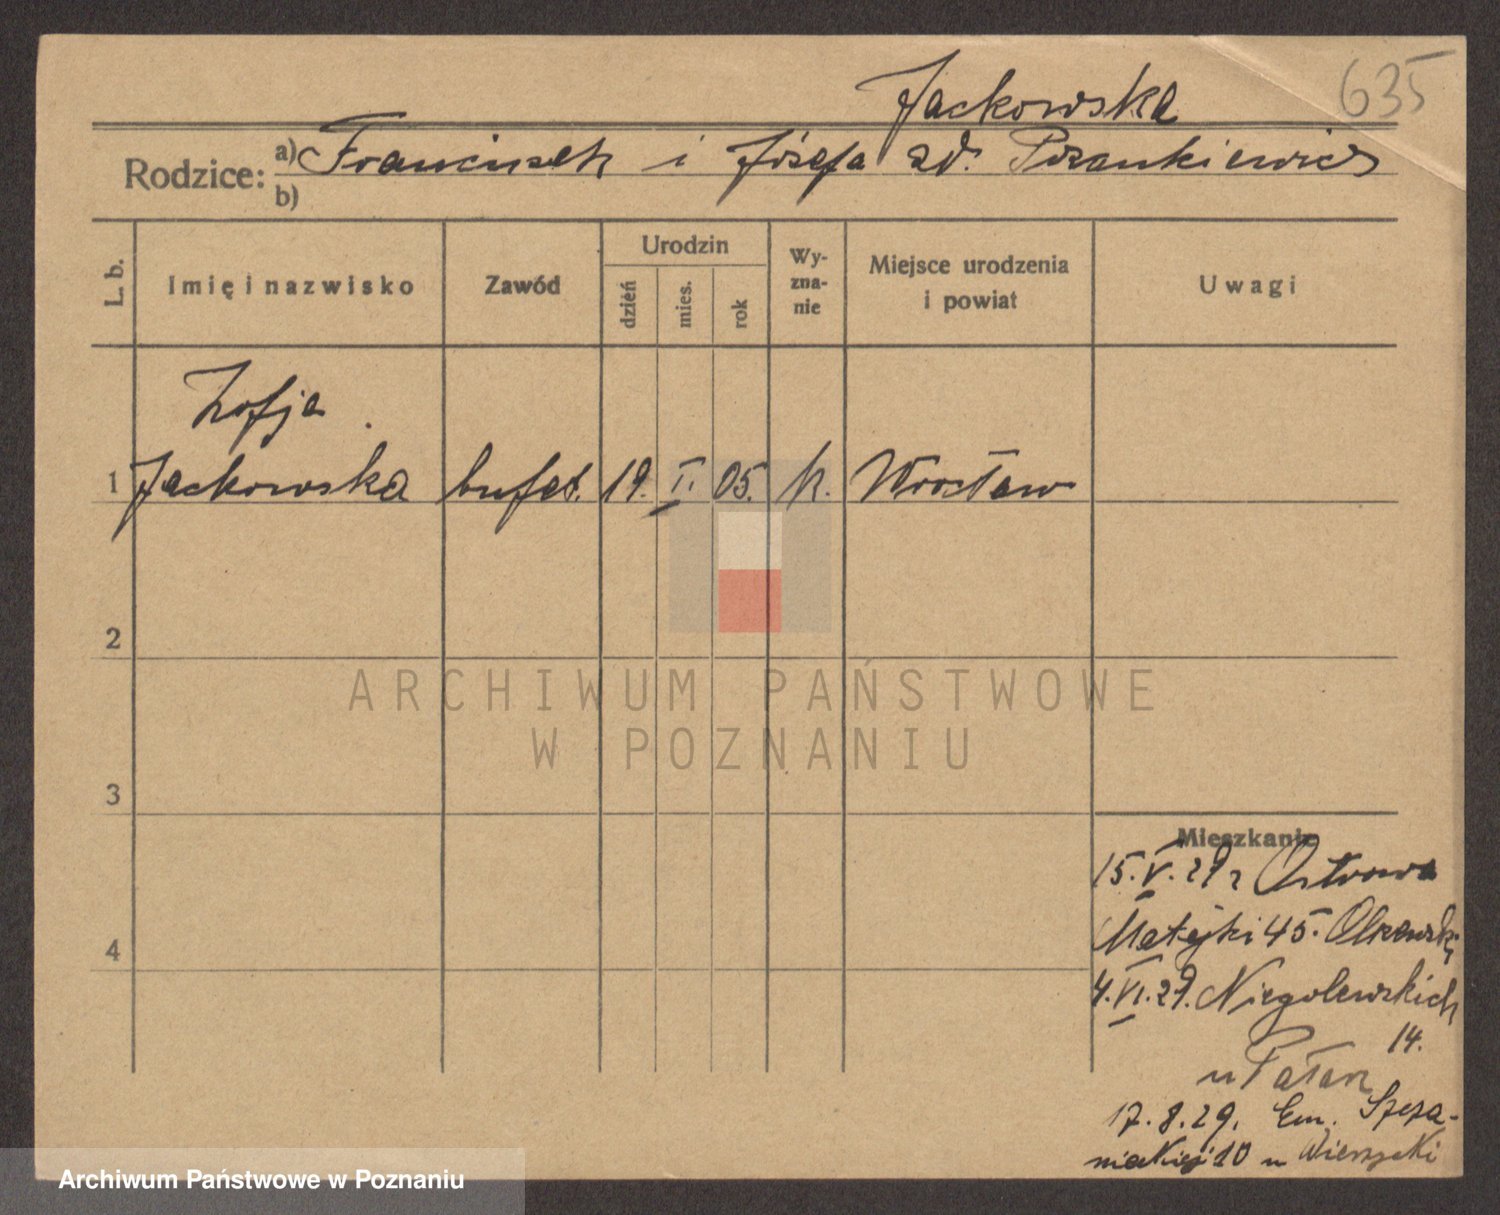 635
Jackowska
Rodzice: a) Franciszek i Józefa zd.
b)
L. b.
Imię i nazwisko
Zawód
Urodzin
dzień
mies.
rok
Wy-
zna-
nie
Miejsce urodzenia
i powiat
Uwagi
Zofja
1 Jackowska bufet. 19. I. 05. k. Wrocław
2
3
4
ARCHIWUM PAŃSTWOWE
W POZNANIU
Mieszkanie
15.V.29 z Ostrowa
Matejki 45.
4.VI.29. Niegolewskich
14.
u
17.8.29. Em. Szcza-
nieckiej 10 u
Archiwum Państwowe w Poznaniu